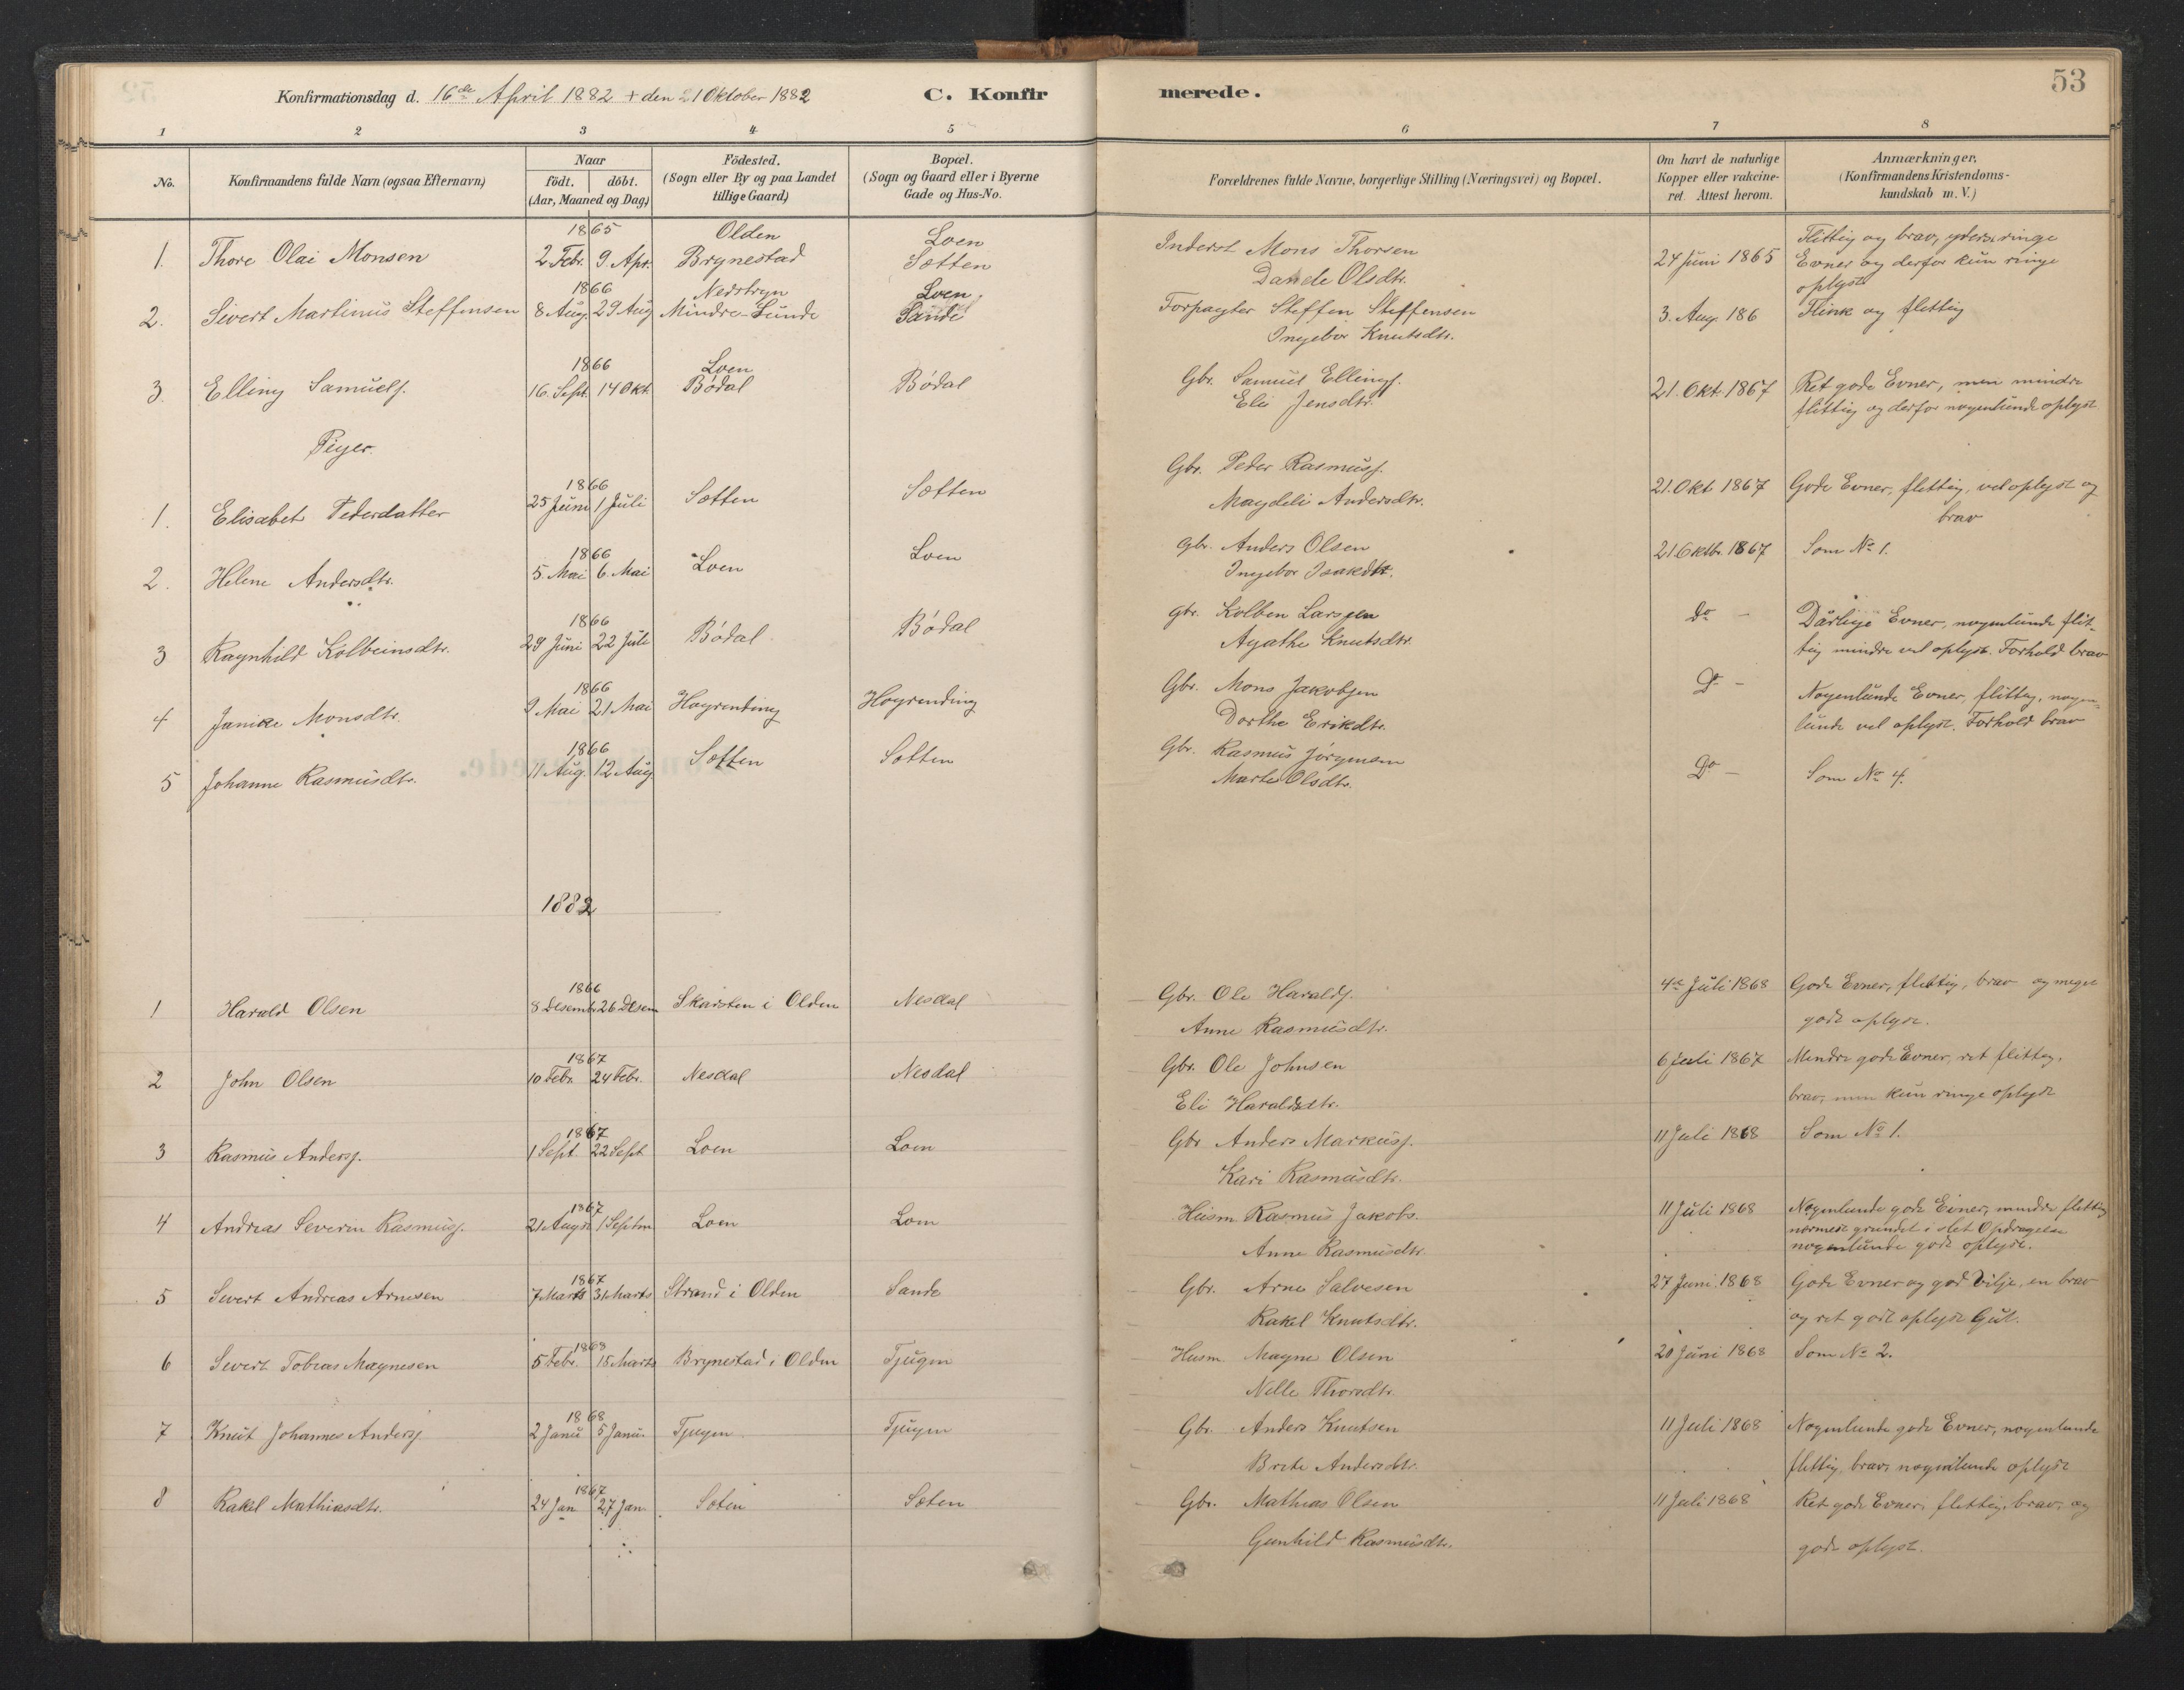 53
Konfirmationsdag d. 16de April 1882 + den 21 Oktober 1882 C. Konfirmerede.
1 2 3 4 5 6 7 8
No.
Konfirmandens fulde Navn (ogsaa Efternavn)
Naar
födt. döbt.
(Aar, Maaned og Dag)
Födested.
(Sogn eller By og paa Landet
tillige Gaard)
Bopæl.
(Sogn og Gaard eller i Byerne
Gade og Hus-No.
Forældrenes fulde Navne, borgerlige Stilling (Næringsvei) og Bopæl.
Om havt de naturlige
Kopper eller vakcine-
ret. Attest herom.
Anmærkninger.
(Konfirmandens Kristendoms-
kundskab m. V.)
1865 Olden Loen Flittig og brav, yderst ringe
1. Thore Olai Monsen 2 Febr. 9 Apr. Brynestad Sætten Inderst Mons Thorsen 24 Juni 1865 Evner og derfor kun ringe
Olsdtr. oplyst
1866 Nedstryn Loen
2. Sivert Martinus Steffensen 8 Aug. 29 Aug Mindre-Sunde Sande Forpagter Steffen Steffensen 3. Aug. 186 Flink og flittig
Ingebor Knutsdtr.
1866 Loen
3 Elling Samuels. 16. Sept. 14 Okt. Bødal Bødal Gbr. Samuel Ellings. 21. Okt. 1867 Ret gode Evner, men mindre
Eli Jensdtr. flittig og derfor nogenlunde oplyst
Piger.
1866 Gbr. Peder Rasmuss.
1. Elisabet Pedersdatter 25 Juni 1 Juli Sætten Sætten Magdeli Andersdtr. 21. Okt 1867 Gode Evner, flittig, vel oplyst og
brav
1866 Gbr. Anders Olsen
2. Helene Andersdtr. 5. Mai 6. Mai Loen Loen Ingebor Isakdtr. 21 Oktbr. 1867 Som No 1.
1866 Gbr. Kolben Larssen Do - Dårlige Evner, nogenlunde flit-
3 Ragnhild Kolbeinsdtr. 29 Juni 22 Juli Bødal Bødal Agathe Knutsdtr. tig mindre vel oplyst. Forhold brav
1866 Gbr. Mons Jakobsen Do -
4 Janike Monsdtr. 9 Mai 21 Mai Hogrending Hogrending Dorthe Eriksdtr. Nogenlunde Evner, flittig, nogen-
lunde vel oplyst. Forhold brav
1866 Gbr. Rasmus Jørgensen
5 Johanne Rasmusdtr. 11 Aug. 12 Aug Sætten Sætten Marte Olsdtr. Do - Som No 4.
1882
1866
1 Harald Olsen 8 Desemb. 26 Desem Skarsten i Olden Nesdal Gbr. Ole Haralds. 4de Juli 1868 Gode Evner, flittig, brav og meget
Anne Rasmusdtr. godt oplyst.
1867
2 John Olsen 10 Febr. 24 Febr. Nesdal Nesdal Gbr. Ole Johnsen 6 Juli 1867 Mindre gode Evner, ret flittig,
Eli Haraldsdtr. brav, men kun ringe oplyst
1867
3 Rasmus Anders. 1 Sept. 22 Sept Loen Loen Gbr Anders Markuss. 11 Juli 1868 Som No 1.
Kari Rasmusdtr.
1867
4 Andreas Severin Rasmuss. 21 August 1 Septem Loen Loen Husm Rasmus Jakobs. 11 Juli 1868 Nogenlunde gode Evner, mindre flittig
nærmest grundet i slet Opdragelse
Anne Rasmusdtr. nogenlunde godt oplyst.
1867
5 Sivert Andreas Arnesen 7 Marts 31 Marts Strand i Olden Sande Gbr. Arne Salvesen 27 Juni 1868 Gode Evner og god Vilje, en brav
Rakel Knutsdtr. og ret godt oplyst Gut.
1868
6 Sivert Tobias Magnesen 5 Febr. 15 Marts Brynestad i Olden Tjugen Husm. Magne Olsen 20 Juni 1868 Som No 2.
Nille Thorsdtr.
1868
7 Knut Johannes Anders. 2 Janu 5 Janu. Tjugen Tjugen Gbr. Anders Knutsen 11 Juli 1868 Nogenlunde gode Evner, nogenlunde
Brite Andersdtr. flittig, brav, nogenlunde oplyst
1867
8 Rakel Mathiasdtr. 24 Jan 27 Jan. Sæten Sæten Gbr. Mathias Olsen 11 Juli 1868 Ret gode Evner, flittig, brav, og
Gunhild Rasmusdtr. godt oplyst.